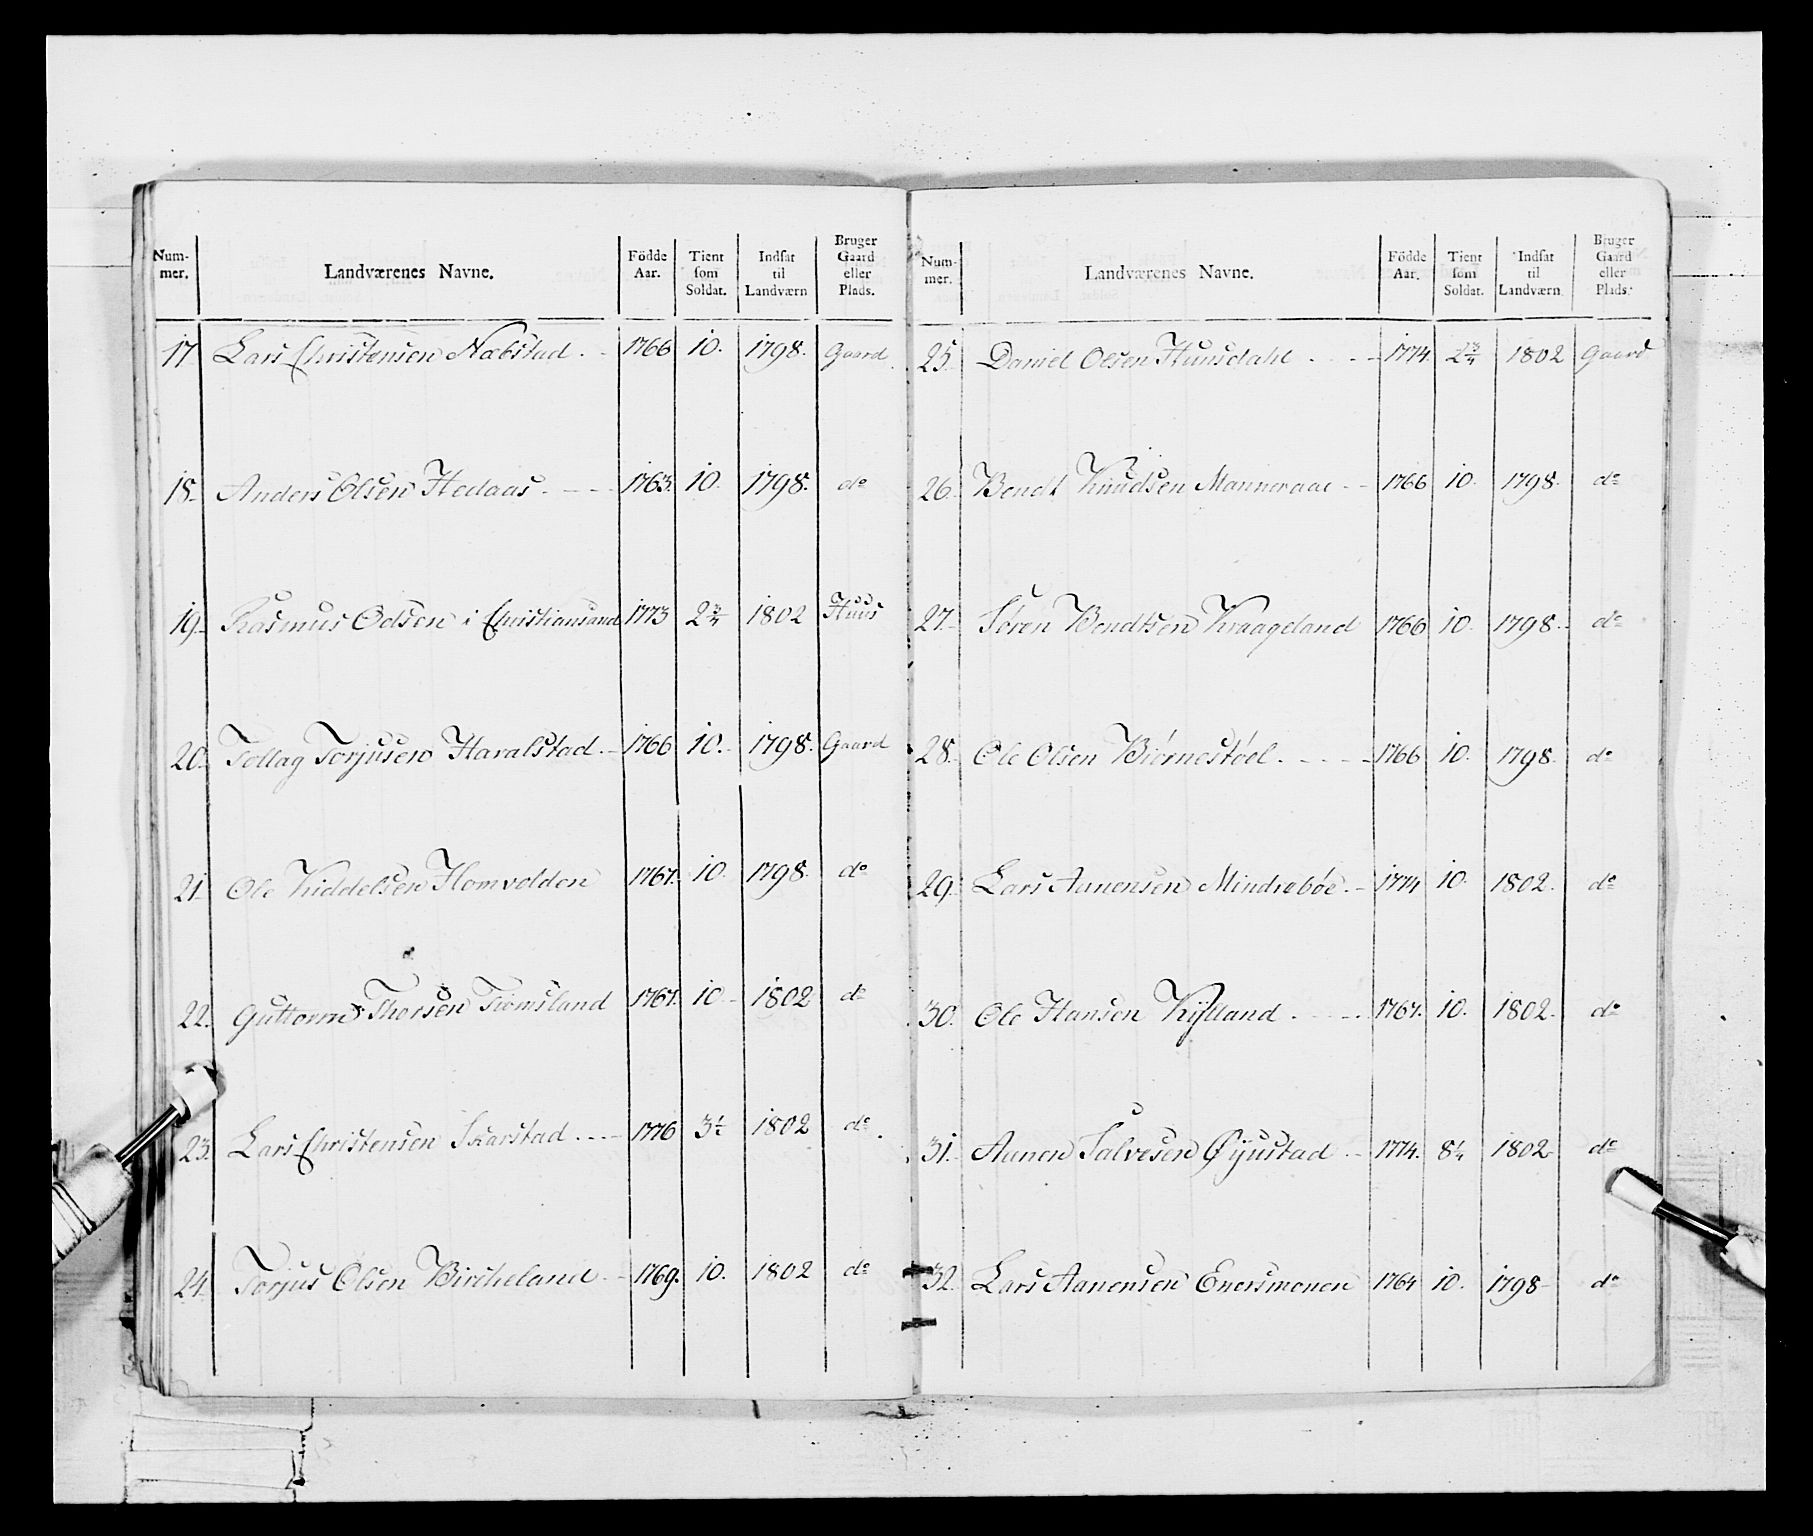 Num- mer. Landværenes Navne. Födde Aar. Tient som Soldat. Indsat til Landværn Bruger Gaard eller Plads.
17 Lars Christensen Næbstad. 1766 10. 1798. Gaard.
18. Anders Olsen Hedaas. 1763. 10. 1798. do
19. Rasmus Odsen i Christiansand 1773 2 3/4 1802 Huus
20. Tollag Torjusen Haralstad. 1766 10. 1798. Gaard
21. Ole Kiddelsen Homvolden 1767. 10. 1798. do
22. Guttorm Thorsen Tromsland 1767. 10 1802 do
23. Lars Christensen Skarstad. 1776 3 1/2 1802 do
24. Torjus Olsen Bircheland. 1769. 10. 1802 do
Num- mer. Landværenes Navne. Födde Aar. Tient som Soldat. Indsat til Landværn Bruger Gaard eller Plads.
25. Daniel Olsen Huusdahl 1774 2 3/4 1802 Gaard
26. Bendt Knudsen Manneraae 1766 10. 1798. do
27. Søren Bendtsen Kraageland 1766 10. 1798. do
28. Ole Olsen Biørnestøel. 1766 10. 1798. do
29. Lars Aanensen Mindrebøe. 1774 10. 1802. do
30. Ole Hansen Kylland. 1767. 10. 1802. do
31. Aanen Salvesen Øyustad. 1774. 8 1/4 1802 do
32. Lars Aanensen Enersmonen 1764 10. 1798 do